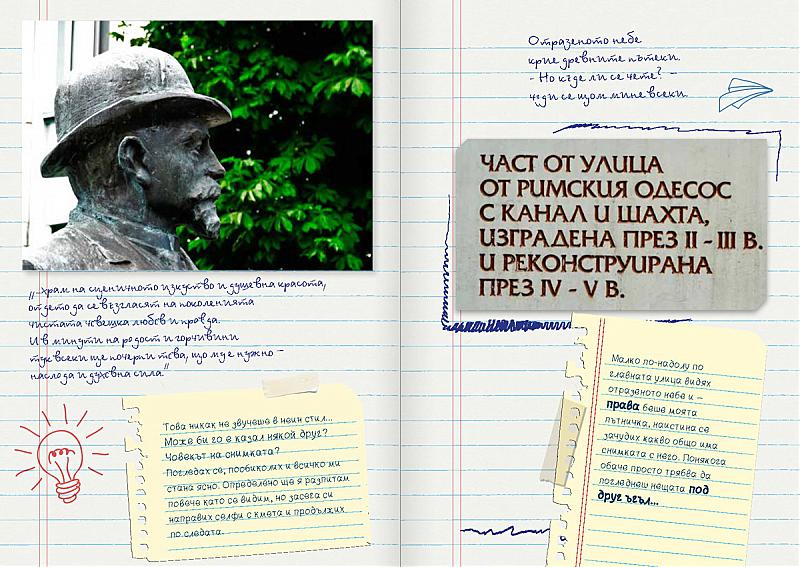 „Храм на сценичното изкуство и душевна красота,
отдето да се възгласят на поколенията
чистата човешка любов и правда.
И в минути на радост и горчивини
тук всеки ще почерпи това, що му е нужно –
наслода и духовна сила."
Това никак не звучеше в неин стил...
Може би го е казал някой друг?
Човекът на снимката?
Погледах се, пообиколих и всичко ми
стана ясно. Определено ще я разпитам
повече като се видим, но засега си
направих селфи с кмета и продължих
по следата.
Отразеното небе
крие древните пътеки.
- Но къде ли се чете? -
чуди се щом мине всеки.
ЧАСТ ОТ УЛИЦА
ОТ РИМСКИЯ ОДЕСОС
С КАНАЛ И ШАХТА,
ИЗГРАДЕНА ПРЕЗ II - III В.
И РЕКОНСТРУИРАНА
ПРЕЗ IV - V В.
Малко по-надолу по
главната улица видях
отразеното небе и –
права беше моята
пътничка, наистина се
зачудих какво общо има
снимката с него. Понякога
обаче просто трябва да
погледнеш нещата под
друг ъгъл...